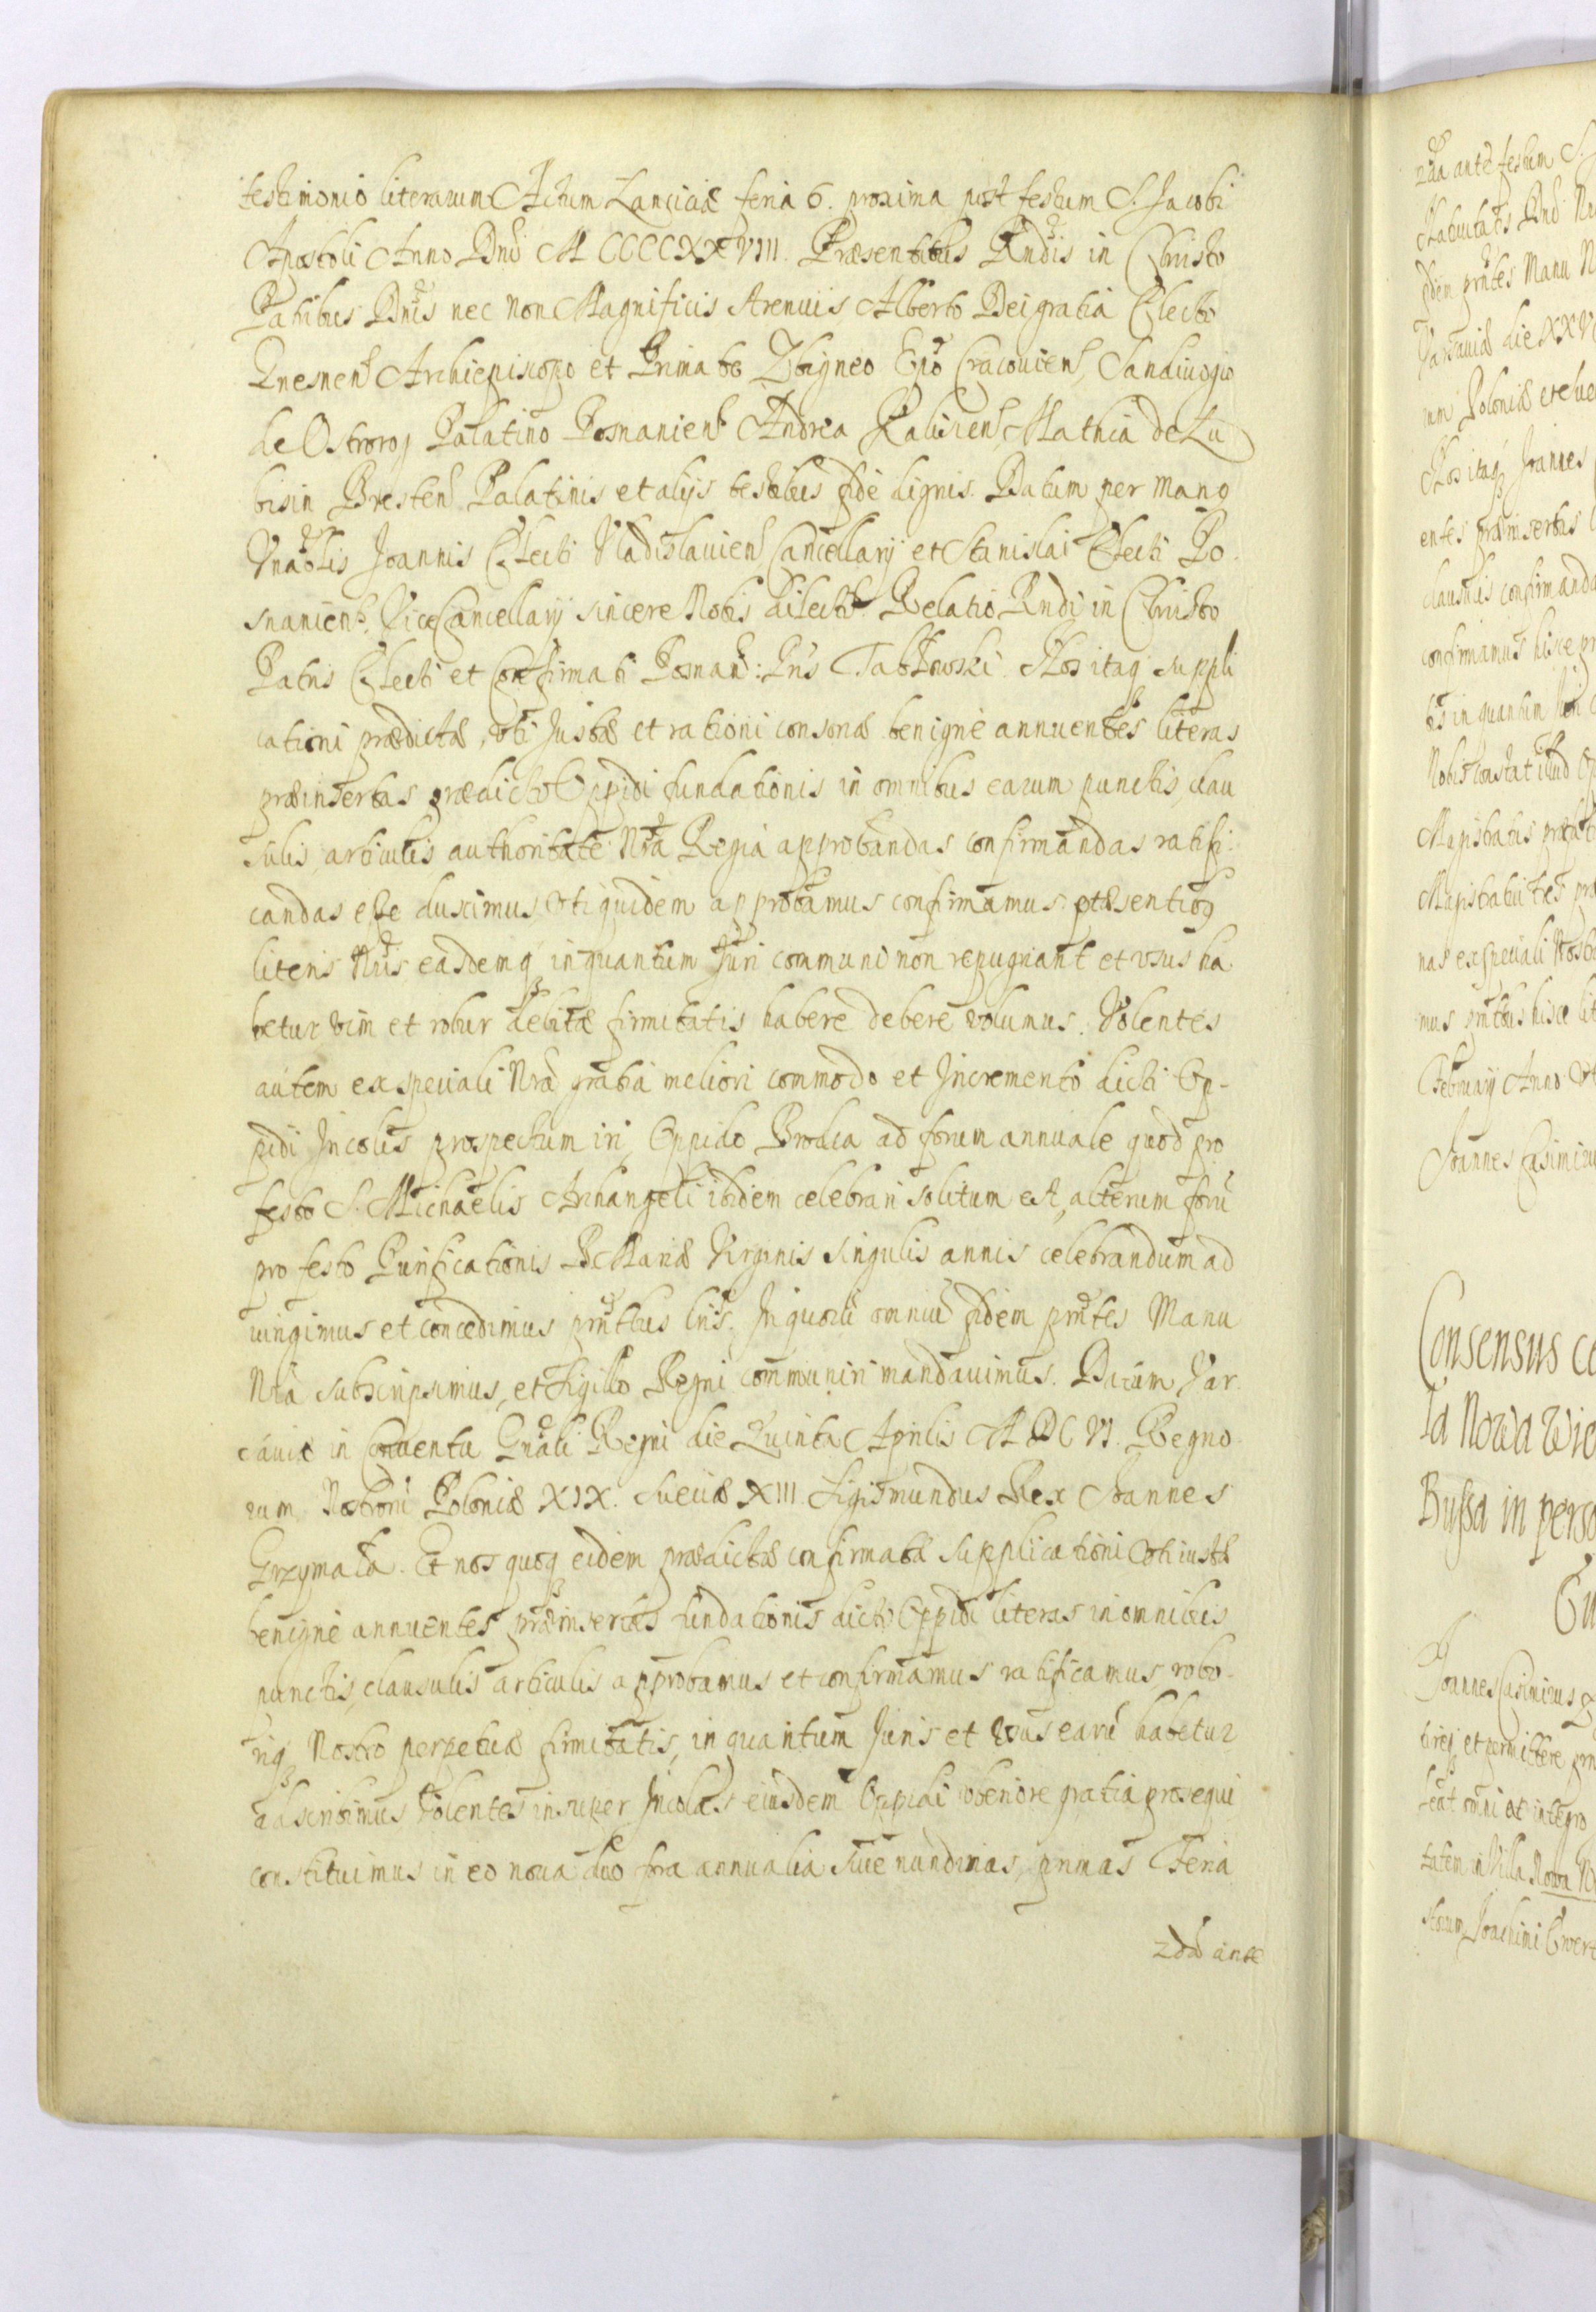 testimonio literarum Actum Lanciciæ feria 6. proxima post festum S. Jacobi
Apostoli Anno Dni M CCCCXXVIII. Præsentibus Rndis in Christo
Patribus Dnis nec non Magnificis Strenuis Alberto Dei gratia Electo
Gnesnens Archiepiscopo et Primate Zbigneo Epo Cracouiens, Sandiuogio
de Ostrorog Palatino Posnaniens Andrea Kalisiens, Mathia de Lu
bisin Brestens Palatinis et alijs testibus fide dignis. Datum per manq
Vnablis Joannis Electi Vladislauiens Cancellarij et Stanislai Electi Po
snaniens, Vice Cancellarij sincere Nobis dilecti. Relatio Rndi in Christo
Patris Electi et Confirmati Posnan: Gris Tabkowski. Nos itaq suppli
cationi prædictæ, vti Justæ et rationi consonæ benigne annuentes literas
præinsertas prædicti Oppidi fundationis in omnibus earum punctis, clau
sulis, articulis authoritate Nra Regia approbandas confirmandas ratifi
candas esse duximus, vti quidem approbamus confirmamus, præsentibq
literis Nris easdemq inquantum Juri communi non repugnant et vsus ha
betur vim et robur debitæ firmitatis habere debere volumus. Volentes
autem ex speciali Nra gratia meliori commodo et Incremento dicti Op-
pidi Incolis prospectum iri, Oppido Brodca ad forum annuale quod pro
festo S. Michaelis Archangeli ibidem celebrari solitum est, alterum foru
pro festo Purificationis B. Mariæ Virginis singulis annis celebrandum ad
iungimus et concedimus prntbus lris. In quoru omniu fidem prntes Manu
Nra subscripsimus, et Sigillo Regni communiri mandauimus. Datum Var
sauiæ in Conuentu Gnali Regni die Quinta Aprilis M DC VI. Regno
rum Nostroru Poloniæ XIX. Sueciæ XIII. Sigismundus Rex Joannes
Grzymała. Et nos quoq eidem prædictæ confirmatæ supplicationi vti iustæ
benigne annuentes præinsertas fundationis dicti Oppidi literas in omnibus
punctis, clausulis articulis approbamus et confirmamus ratificamus, robo
riq Nostro perpetuæ firmitatis, in quantum Juris et vsus earu habetur
adscribimus Volentes insuper Incolas eiusdem Oppidi vberiore gratia prosequi
constituimus in eo noua duo fora annualia siue nundinas, primas Feria
2da ante
2da ante festum S.
Natiuitatis Dni
fidem prntes Manu
Varsauiæ die XXV
num Poloniæ et
Nos itaq Joannes
entes præinsertas
clausulis confirmanda
confirmamus hisce
in quantum
Nobis constat illud
Magistratus
Magistratui
nas ex speciali Nost
mus prntbus hisce lit
Februarij Anno
Joannes Casimirus
Consensus
ta Nowa Wie
Bussa in perso
Joannes Casimirus
et permittere
omni et integro
tatem in Villa Nowa
Joachimi